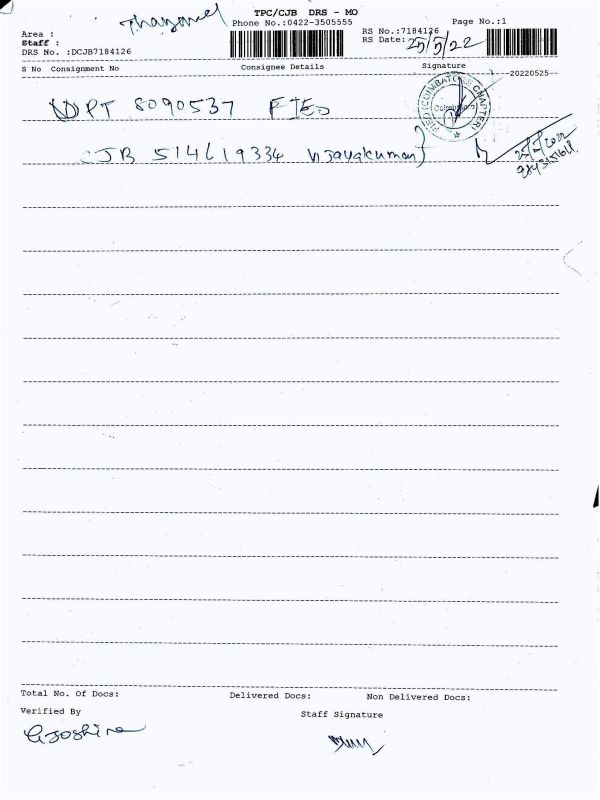 TPC/CJB DRS - MO
Phone No.:0422-3505555
Page No.:1
Area :
Staff :
DRS No. :DCJB7184126
RS No.:7184126
RS Date: 25/5/22
S No Consignment No Consignee Details Signature
-20220525-
DPT 8090537 FIEO
CJB 514619334 Vijayakumar
FIEO (COIMBATORE CHAPTER)
Coimbatore
Total No. Of Docs: Delivered Docs: Non Delivered Docs:
Verified By Staff Signature